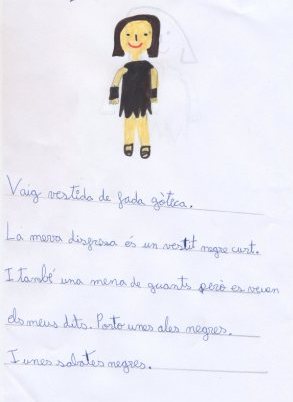 Vaig vestida de fada gòtica.
La meva disfressa és un vestit negre curt.
I també una mena de guants però es veuen
els meus dits. Porto unes ales negres.
I unes sabates negres.